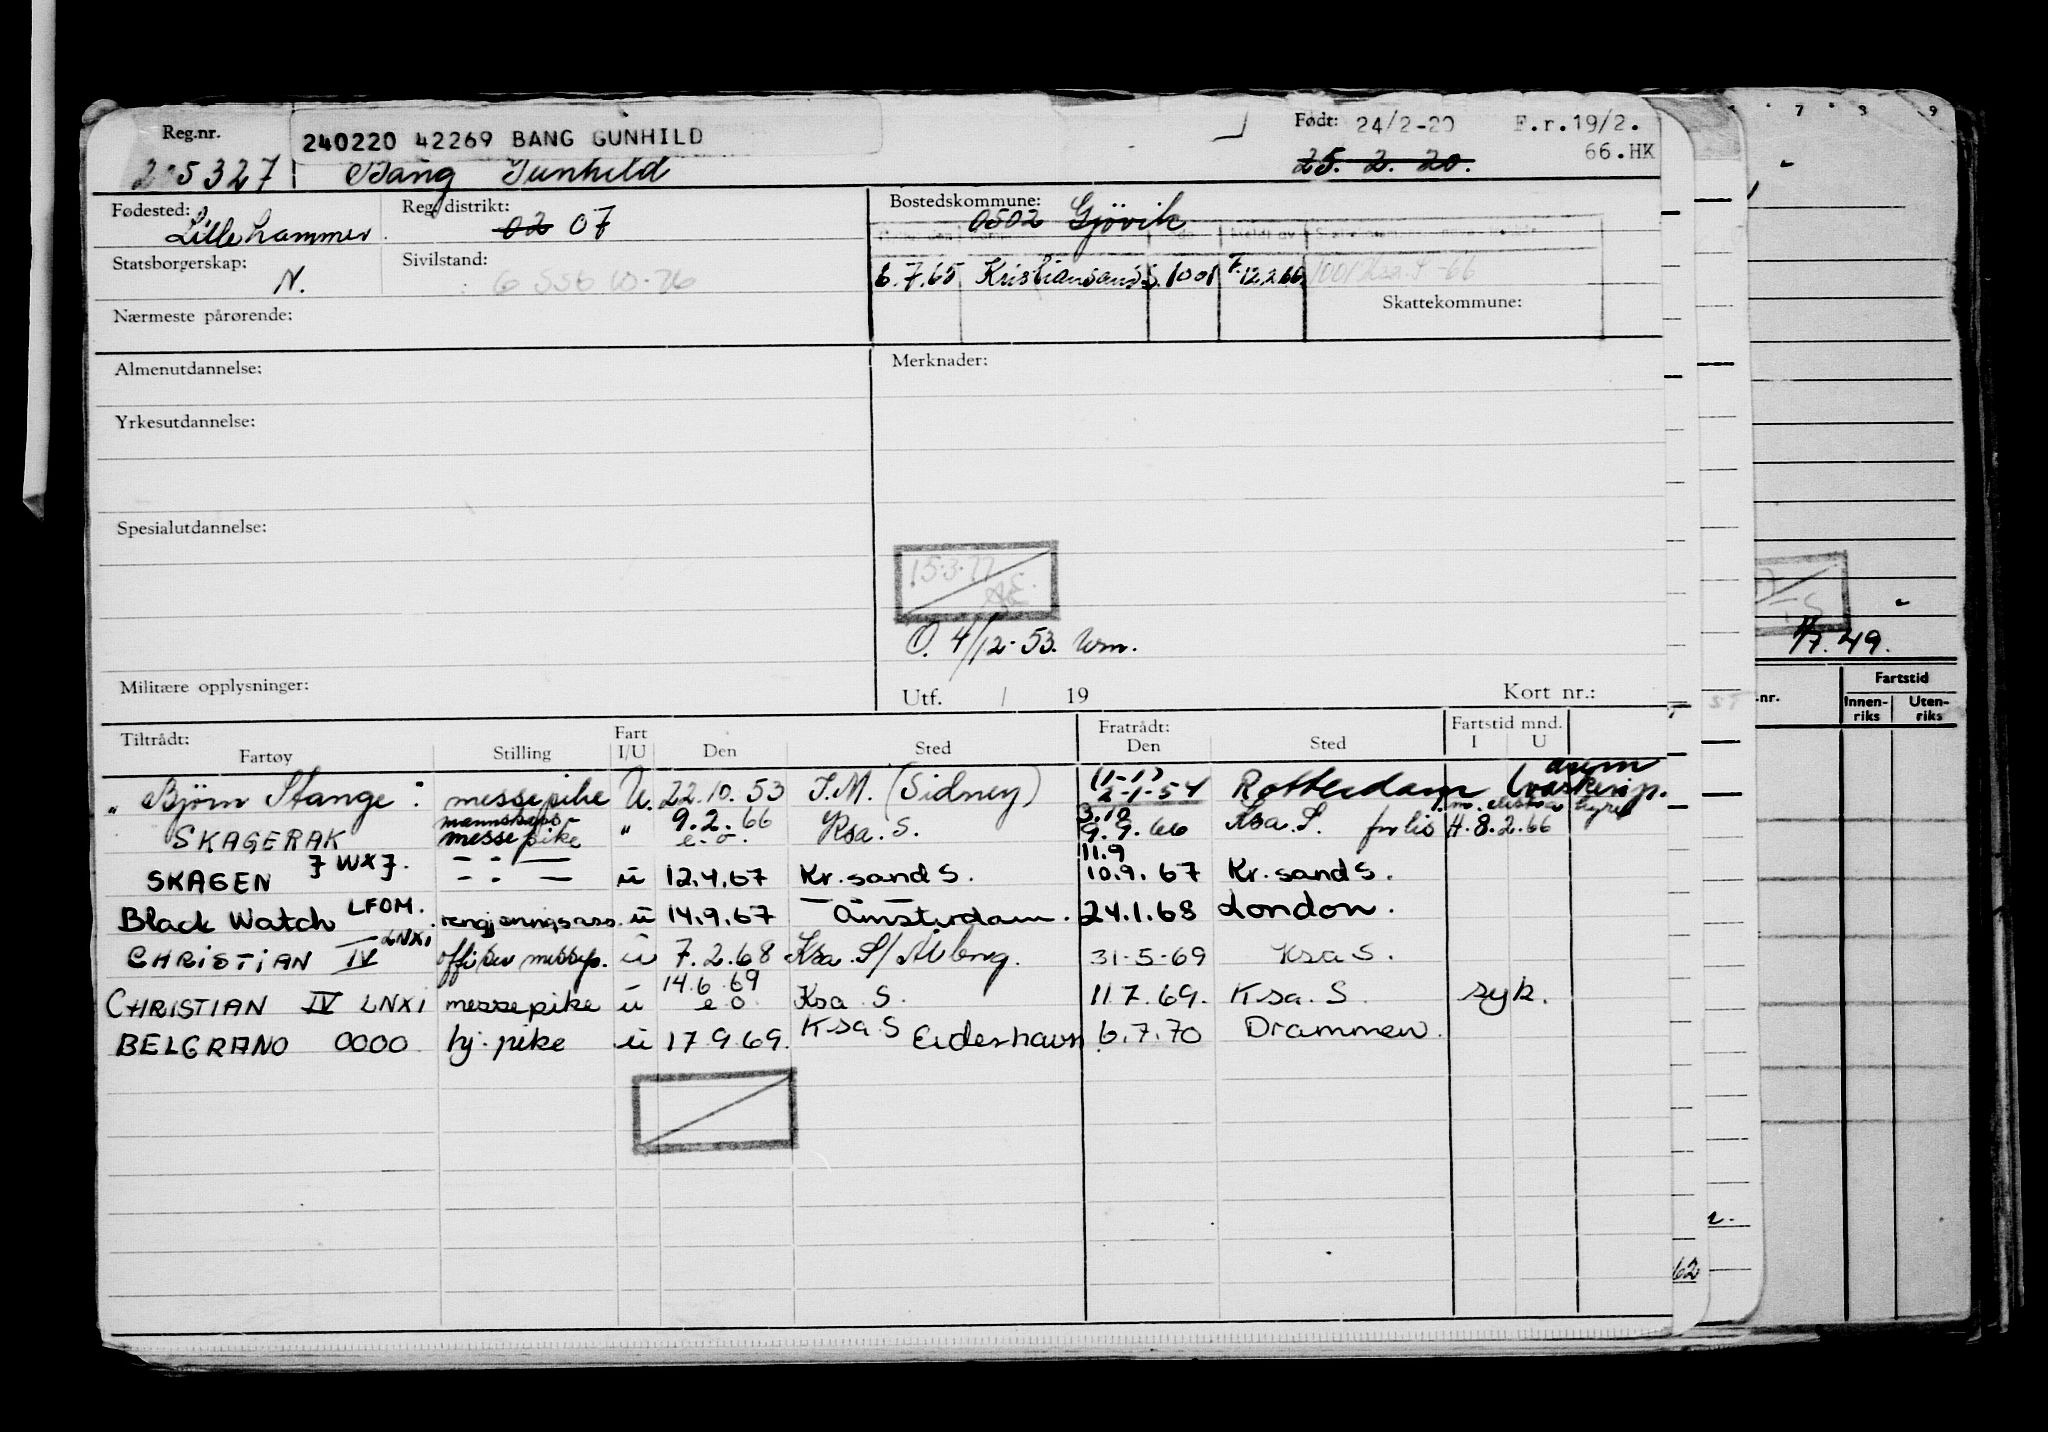 Reg.nr. 240220 42269 BANG GUNHILD Født: 24/2-20 F.r.19/2.
25. 2. 20. 66.HK
5327 Bang Gunhild
Fødested: Lillehammer Reg. distrikt: 02 07 Bostedskommune: 0502 Gjövik
Statsborgerskap: N. Sivilstand: 6.7.65 Kristiansand S. 1001 F. 12.2.66
Skattekommune:
Nærmeste pårørende:
Almenutdannelse: Merknader:
Yrkesutdannelse:
Spesialutdannelse:
15.3.77
AE.
O. 4/12-53. Wm.
Militære opplysninger: Utf. / 19 Kort nr.:
4/7.49.
Fartstid
Innen-riks Uten-riks
Tiltrådt: Fratrådt: Fartstid mnd.
Fartøy Stilling Fart I/U Den Sted Den Sted I U
" Bjørn Stange " messepike U. 22.10.53 J.M. (Sidney) 2-1-54 Rotterdam
SKAGERAK mannskaps- messepike " 9.2.66 e.o. Ksa. S. 3.10 9.9.66 Ksa. S. 8.2.66 hyre
SKAGEN JWXJ. - " - u 12.4.67 Kr.sand S. 11.9 10.9.67 Kr.sand S.
Black Watch LFOM. rengjøringsass. u 14.9.67 Amsterdam. 24.1.68 London.
CHRISTIAN IV LNXI offiser messep. u 7.2.68 Ksa. S/Ålborg. 31-5-69 Ksa S.
CHRISTIAN IV LNXI messepike u 14.6.69 e o Ksa. S. 11.7.69. Ksa. S. syk.
BELGRANO 0000 bj. pike u 17.9.69. Ksa S Eidershavn 6.7.70 Drammen.
62